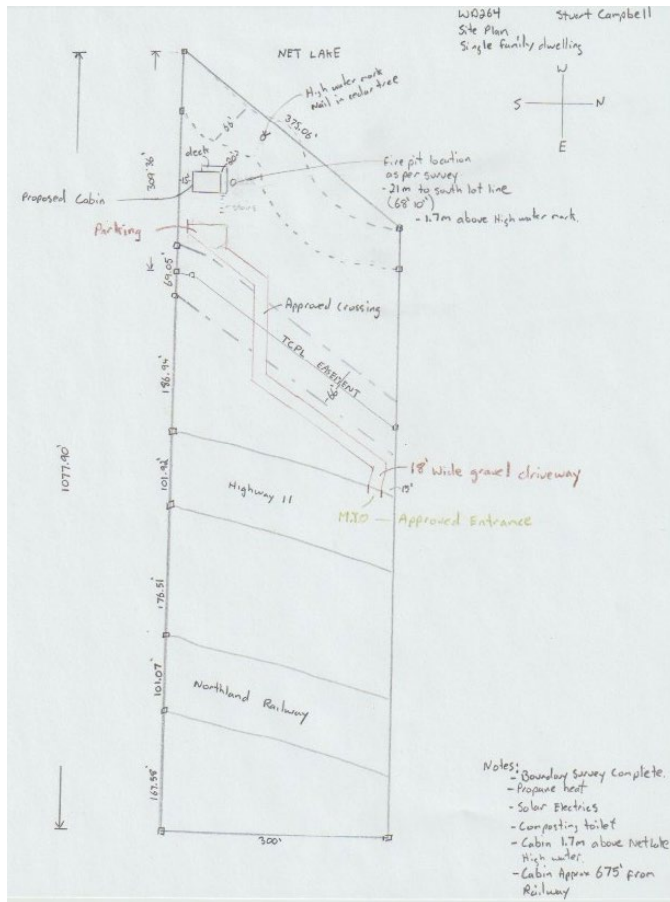 WA264 Stuart Campbell
Site Plan
Single family dwelling
W
S N
E
NET LAKE
High water mark
Nail in cedar tree
375.06'
66'
309.76'
deck
15'
Proposed Cabin
Fire pit location
as per survey
- 21m to south lot line
(68' 10")
- 1.7m above High water mark.
stairs
Parking
69.05'
Approved Crossing
TCPL EASEMENT
66'
186.94'
1077.90'
101.92'
18' Wide gravel driveway
15'
Highway 11
MTO — Approved Entrance
176.51'
101.07'
Northland Railway
167.58'
300'
Notes:
- Boundary Survey Complete.
- Propane heat
- Solar Electrics
- Composting toilet
- Cabin 1.7m above Net Lake
High water.
- Cabin Approx 675' from
Railway